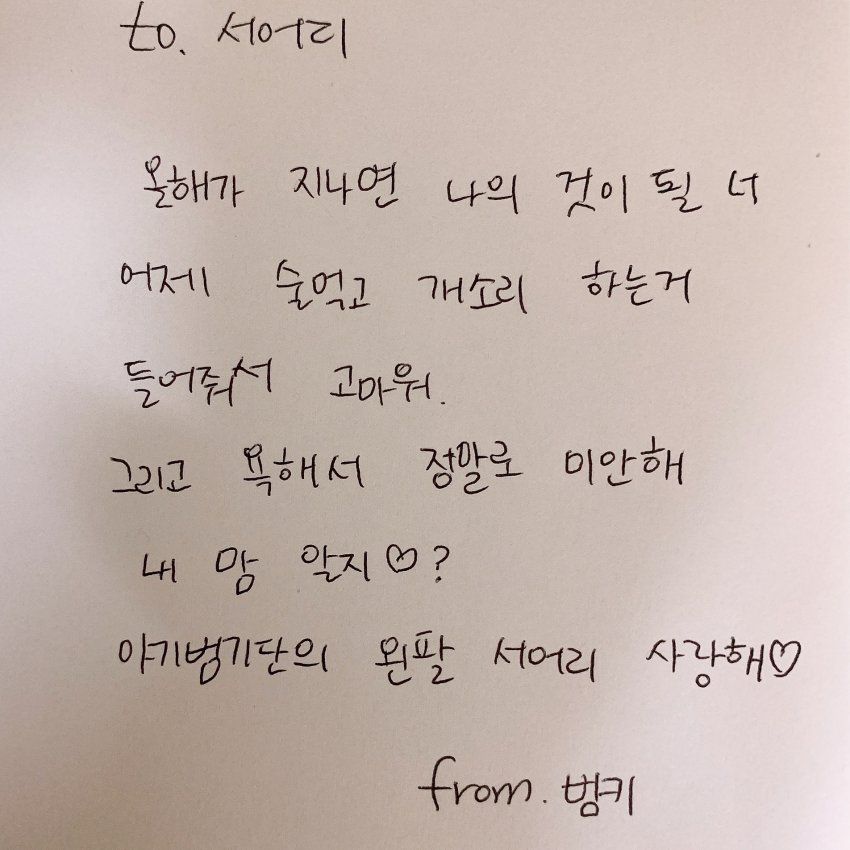 to. 서어리
올해가 지나면 나의 것이 될 너
어제 술먹고 개소리 하는거
들어줘서 고마워.
그리고 욕해서 정말로 미안해
내 맘 알지♡?
야기벙기단의 왼팔 서어리 사랑해♡
from. 벙키